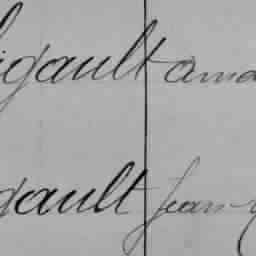 igault ama
gault jean-